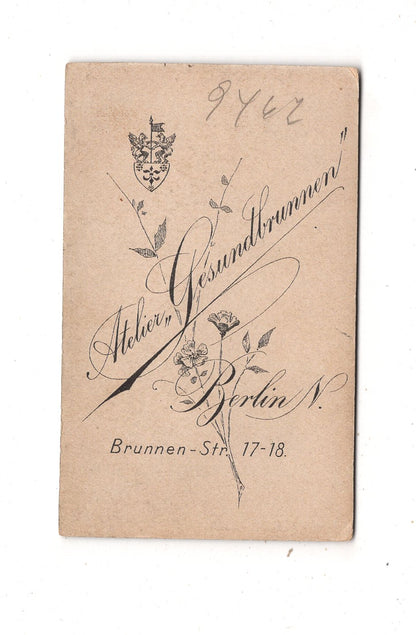 9462
Atelier „Gesundbrunnen“
Berlin N.
Brunnen-Str. 17-18.